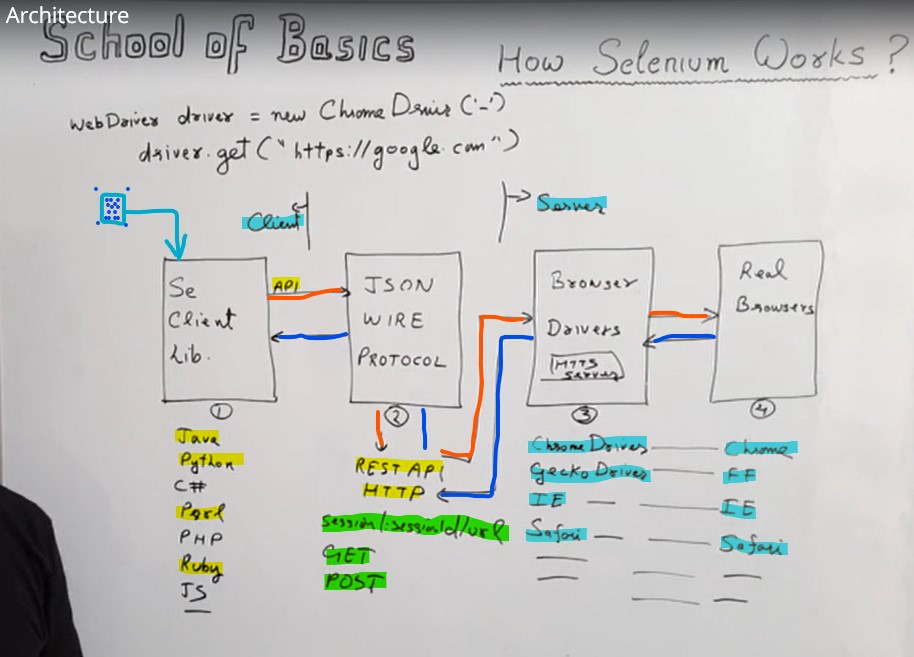 Architecture
School of Basics
How Selenium Works ?
WebDriver driver = new Chrome Driver ('-')
driver.get ("https://google.com")
Client
Server
Se
Client
Lib.
API
JSON
WIRE
PROTOCOL
Browser
Drivers
HTTP
Server
Real
Browsers
1
2
3
4
Java
Python
C#
Perl
PHP
Ruby
JS
REST API
HTTP
session/:sessionId/url
GET
POST
Chrome Driver
Gecko Driver
IE
Safari
Chrome
FF
IE
Safari